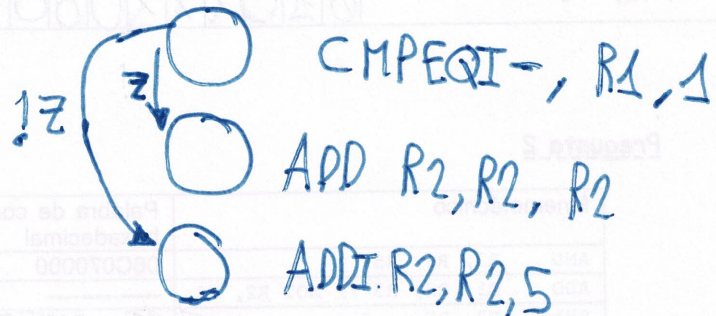 CMPEQI -, R1, 1
!Z
Z
ADD R2, R2, R2
ADDI R2, R2, 5